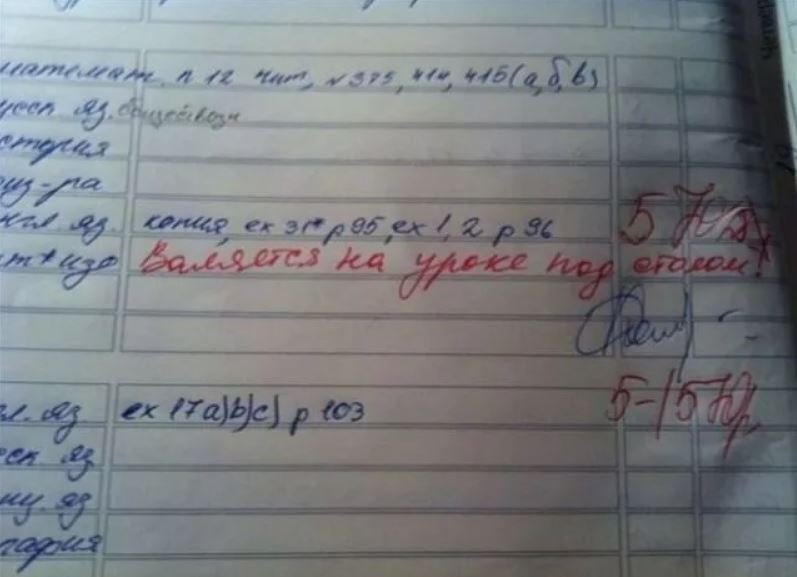 математ. п 12 чит, №375, 414, 415(а,б,в)
русск яз.
стория
из-ра
нгл яз. копия, ex 31* p 95, ex 1, 2 p 96 5
ит+изо Валяется на уроке под столом!
гл. яз ex 17a)b)c) p 103 5-/5
сск яз
яз
графия